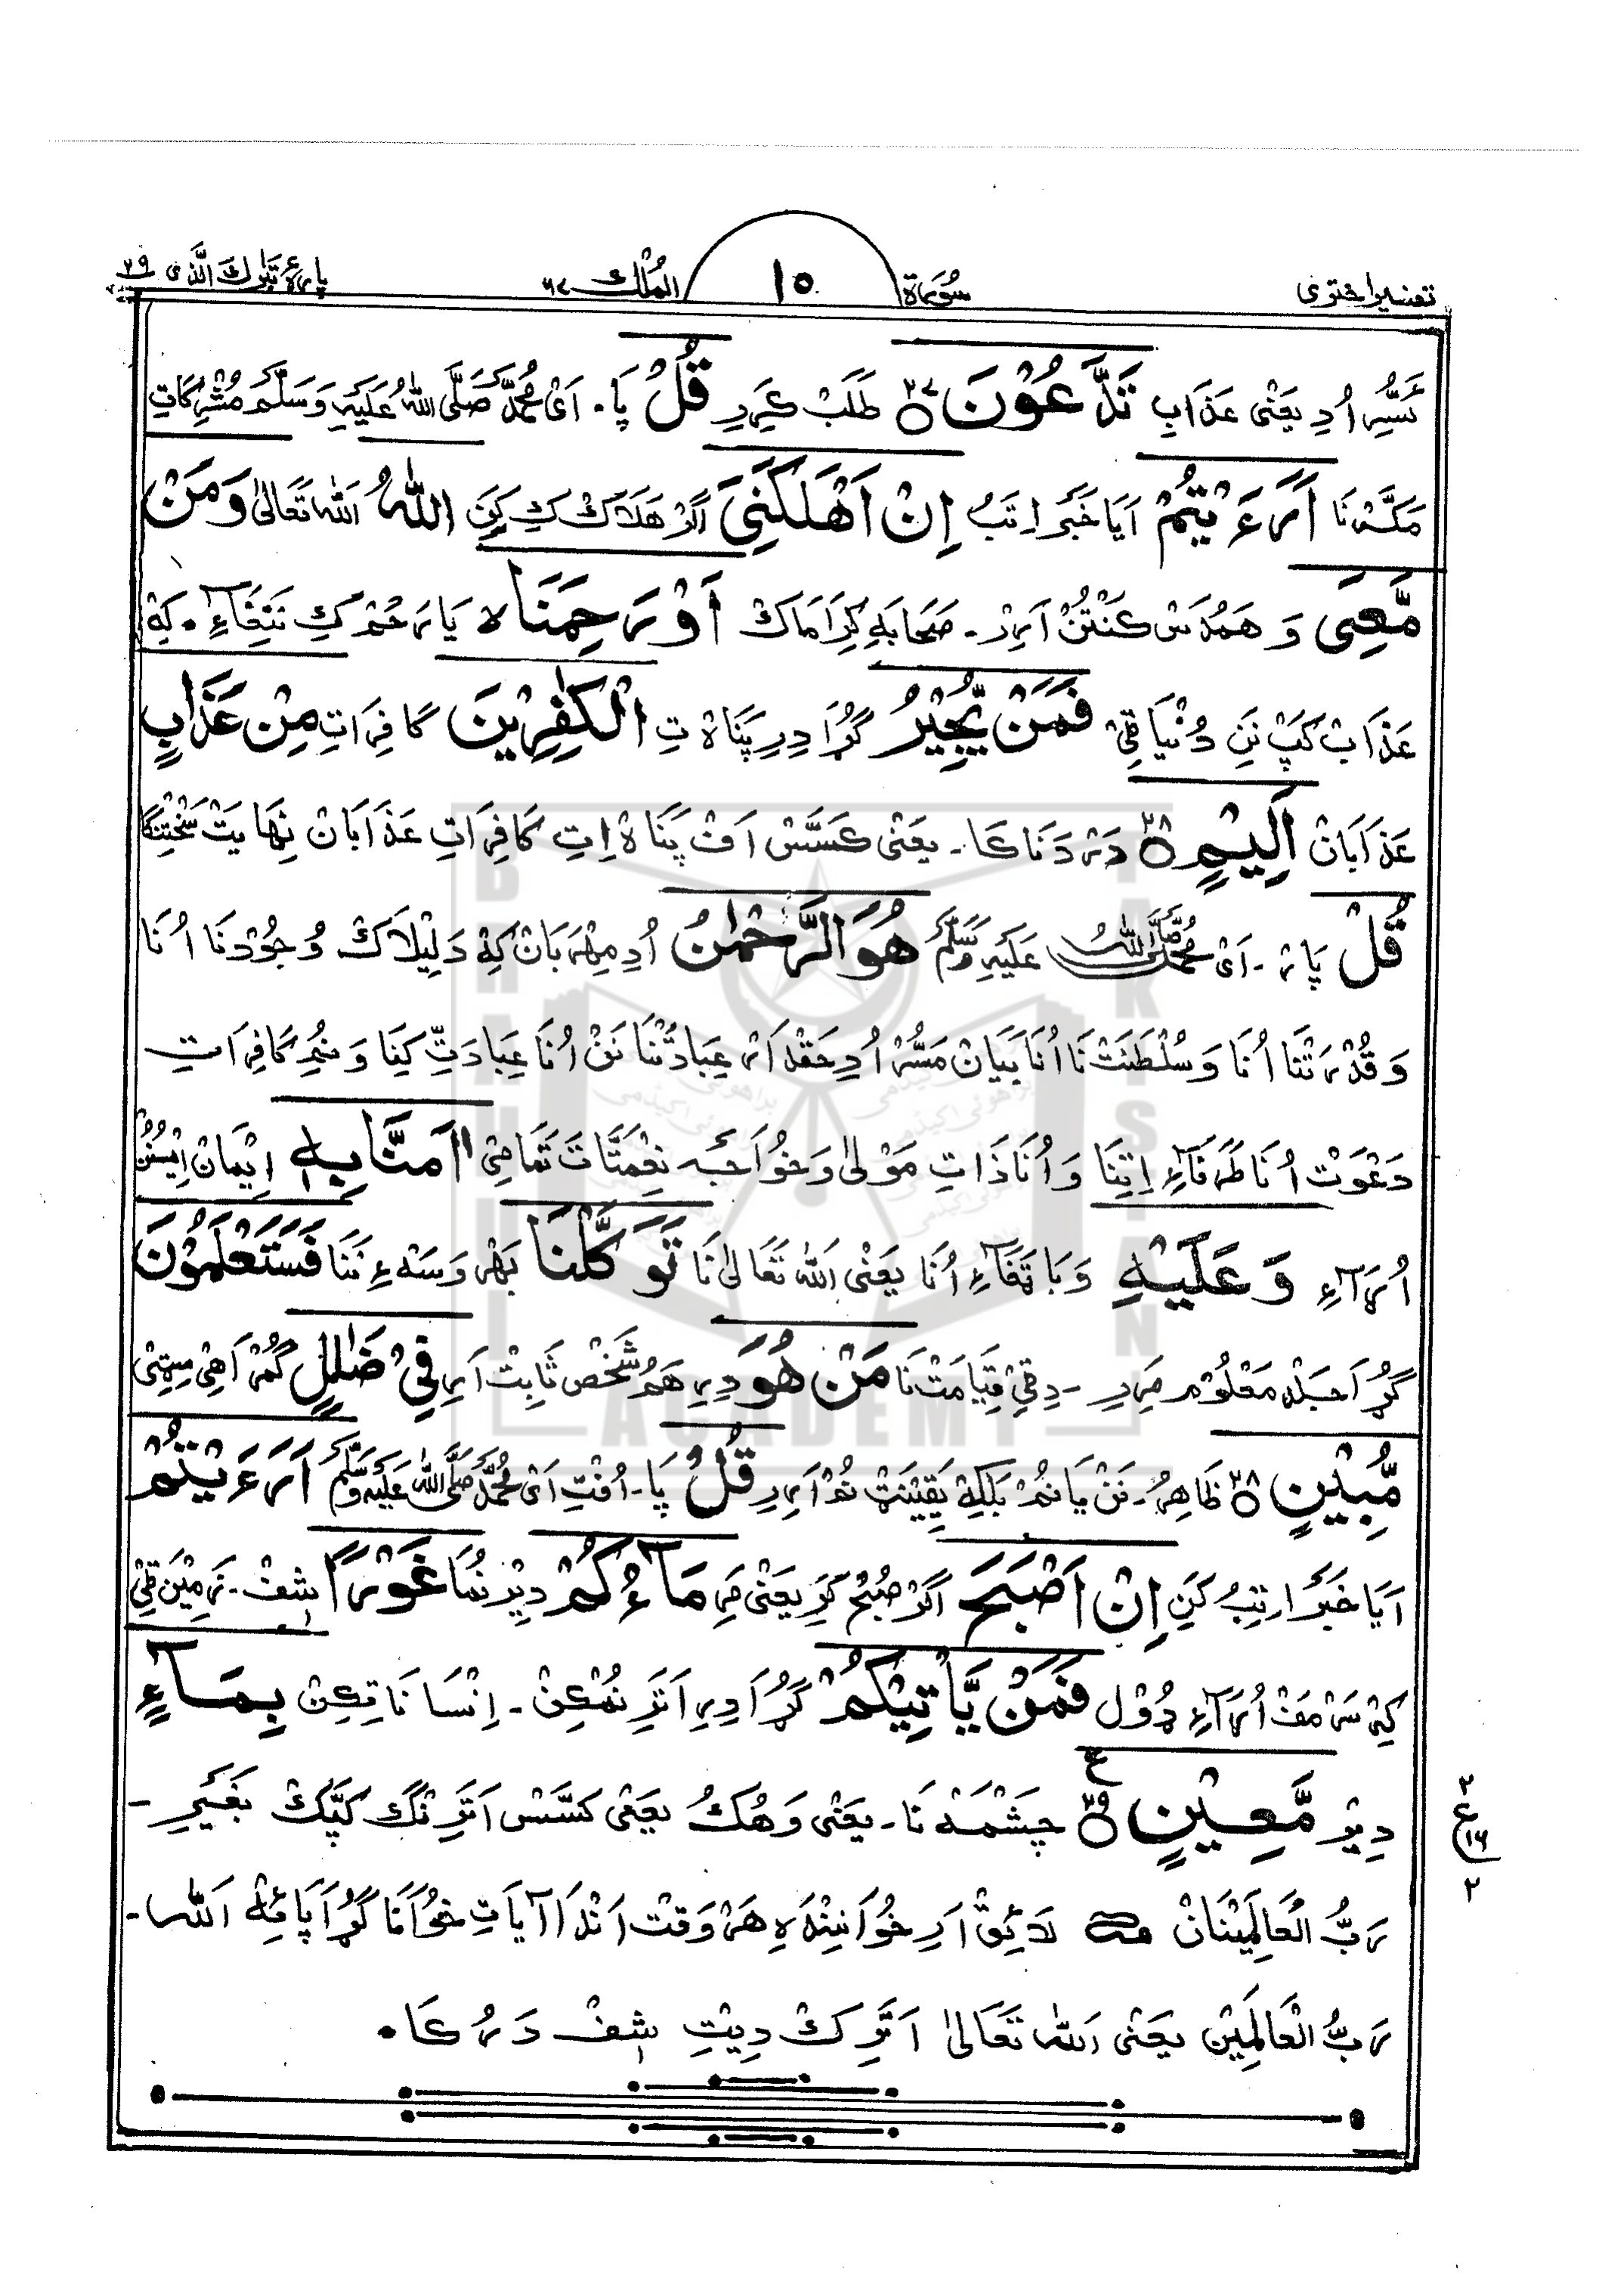 تفسیر اختری سُوْرَۃ ١٥ المُلْك ٦٧ پارہ تَبٰرَكَ الَّذِی ٢٩
ئسُّرِ اُدِ یَعْنٰی عَذَابِ تَدَّعُوْنَ ٢٧ طَلَبْ کَرِیرِ قُلْ پَا۔ اَیْ مُحَمَّدْ صَلَّی اللّٰهُ عَلَیْہِ وَسَلَّمَ مُشْرِکَاتِ
مَکَّہْ نَا اَرَءَیْتُمْ اَیَا خَبَر اِتَبُ اِنْ اَهْلَكَنِیَ اَگَرْ هَلَاكْ كِ كَنِ اللّٰهُ اَللّٰه تَعَالٰی وَمَنْ
مَّعِیَ وَ هَمُدَس کَنْتُنْ اَرِرْ۔ صَحَابَہِ کِرَامَاكْ اَوْ رَحِمَنَا لا یَا رَحْم كِ نَنِغَاءِ۔ کِہْ
عَذَابْ کَپْ نَنِ دُنْیَا ٹِیْ فَمَنْ یُّجِیْرُ گُڑَا دِرِ پَنَاہْ تِ الْكٰفِرِیْنَ کَافِرَاتِ مِنْ عَذَابٍ
عَذَابَانْ اَلِیْمٍ ٢٨ دَرْدَنَاکَا۔ یَعْنٰی کَسَّسْ اَفْ پَنَاہْ اِتِ کَافِرَاتِ عَذَابَانْ نِهَایَتْ سَخْتِنگَا
قُلْ پَارْ۔ اَیْ مُحَمَّدْ صَلَّی اللّٰهُ عَلَیْہِ وَسَلَّمْ هُوَ الرَّحْمٰنُ اُدِ مِهْرَبَانْ کِہْ دَلِیْلَاكْ وُجُوْدنَا اُنَا
وَ قُدْرَتْنَا اُنَا وَ سُلْطَنَتْ نَا اُنَا بَیَانْ مَسُّرْ اُدِ حَقْدَارْ عِبَادَتْنَا نَنْ اُنَا عِبَادَتِّ کِنَا وَ نُمِ کَافِرَاتِ
دَعْوَتْ اُنَا طَرَفَاءِ اِتِنَا وَ اُنَا ذَاتِ مَوْلٰی وَ خُوَاجَہ نِعْمَتَّاتَ تَمَامِیْ اٰمَنَّا بِهٖ اِیْمَانْ اِیْسُنُ
اُرَاءِ وَعَلَیْهِ وَ بَا تَغَاءِ اُنَا یَعْنٰی اَللّٰه تَعَالٰی نَا تَوَكَّلْنَا بَهْرَوَسَہ ءِ نَنَا فَسَتَعْلَمُوْنَ
گُڑَا جَلْد مَعْلُوْم مَرِیرِ۔ دِ ٹِیْ قِیَامَتْ نَا مَنْ هُوَ دِرِ هَمُ شَخْص ثَابِتْ اَرِ فِیْ ضَلٰلٍ گُمْرَاهِیْ سِیْتِیْ
مُّبِیْنٍ ٢٨ ظَاهِرُ۔ نَنْ یَا نُمْ بَلکِہْ یَقِیْنَتْ نُمْ اَرِرِ قُلْ پَا۔ اُفْتِ اَیْ مُحَمَّدْ صَلَّی اللّٰهُ عَلَیْہِ وَسَلَّمْ اَرَءَیْتُمْ
اَیَا خَبَر اِتِبُ کَنِ اِنْ اَصْبَحَ اَگَرْ صُبْح کَرِ یَعْنٰی مَرِ مَآؤُكُمْ دِیْر نُمَا غَوْرًا شِفْ۔ زَمِیْن ٹِیْ
کِہْ سَرْ مَفْ اُرَاءِ ڈُوْل فَمَنْ یَّاْتِیْكُمْ گُڑَا دِرِ اَتَرِ نُمْکِنْ۔ اِنْسَانَا تِکِنْ بِمَآءٍ
دِیْر مَّعِیْنٍ ٢٩ چَشْمَہ نَا۔ یَعْنٰی وَهُكُ یَعْنٰی کَسَّسْ اَتَرِنْگ کَپَّكْ بَغَیْرِ۔
رَبُّ الْعَالَمِیْنَانْ لَائِقْ اَرِ خُوَانِنْدَہِ هَرْوَقْت اَنْدَا آیَاتِ خُوَانَا گُڑَا پَائِہْ اَللّٰه۔
رَبُّ الْعَالَمِیْن یَعْنٰی اَللّٰه تَعَالٰی اَتَرِكْ دِیْتِ شِفْ دَرُکَا۔
٢ ع ١٦ ٢
BRAHUI
ACADEMY
PAKISTAN